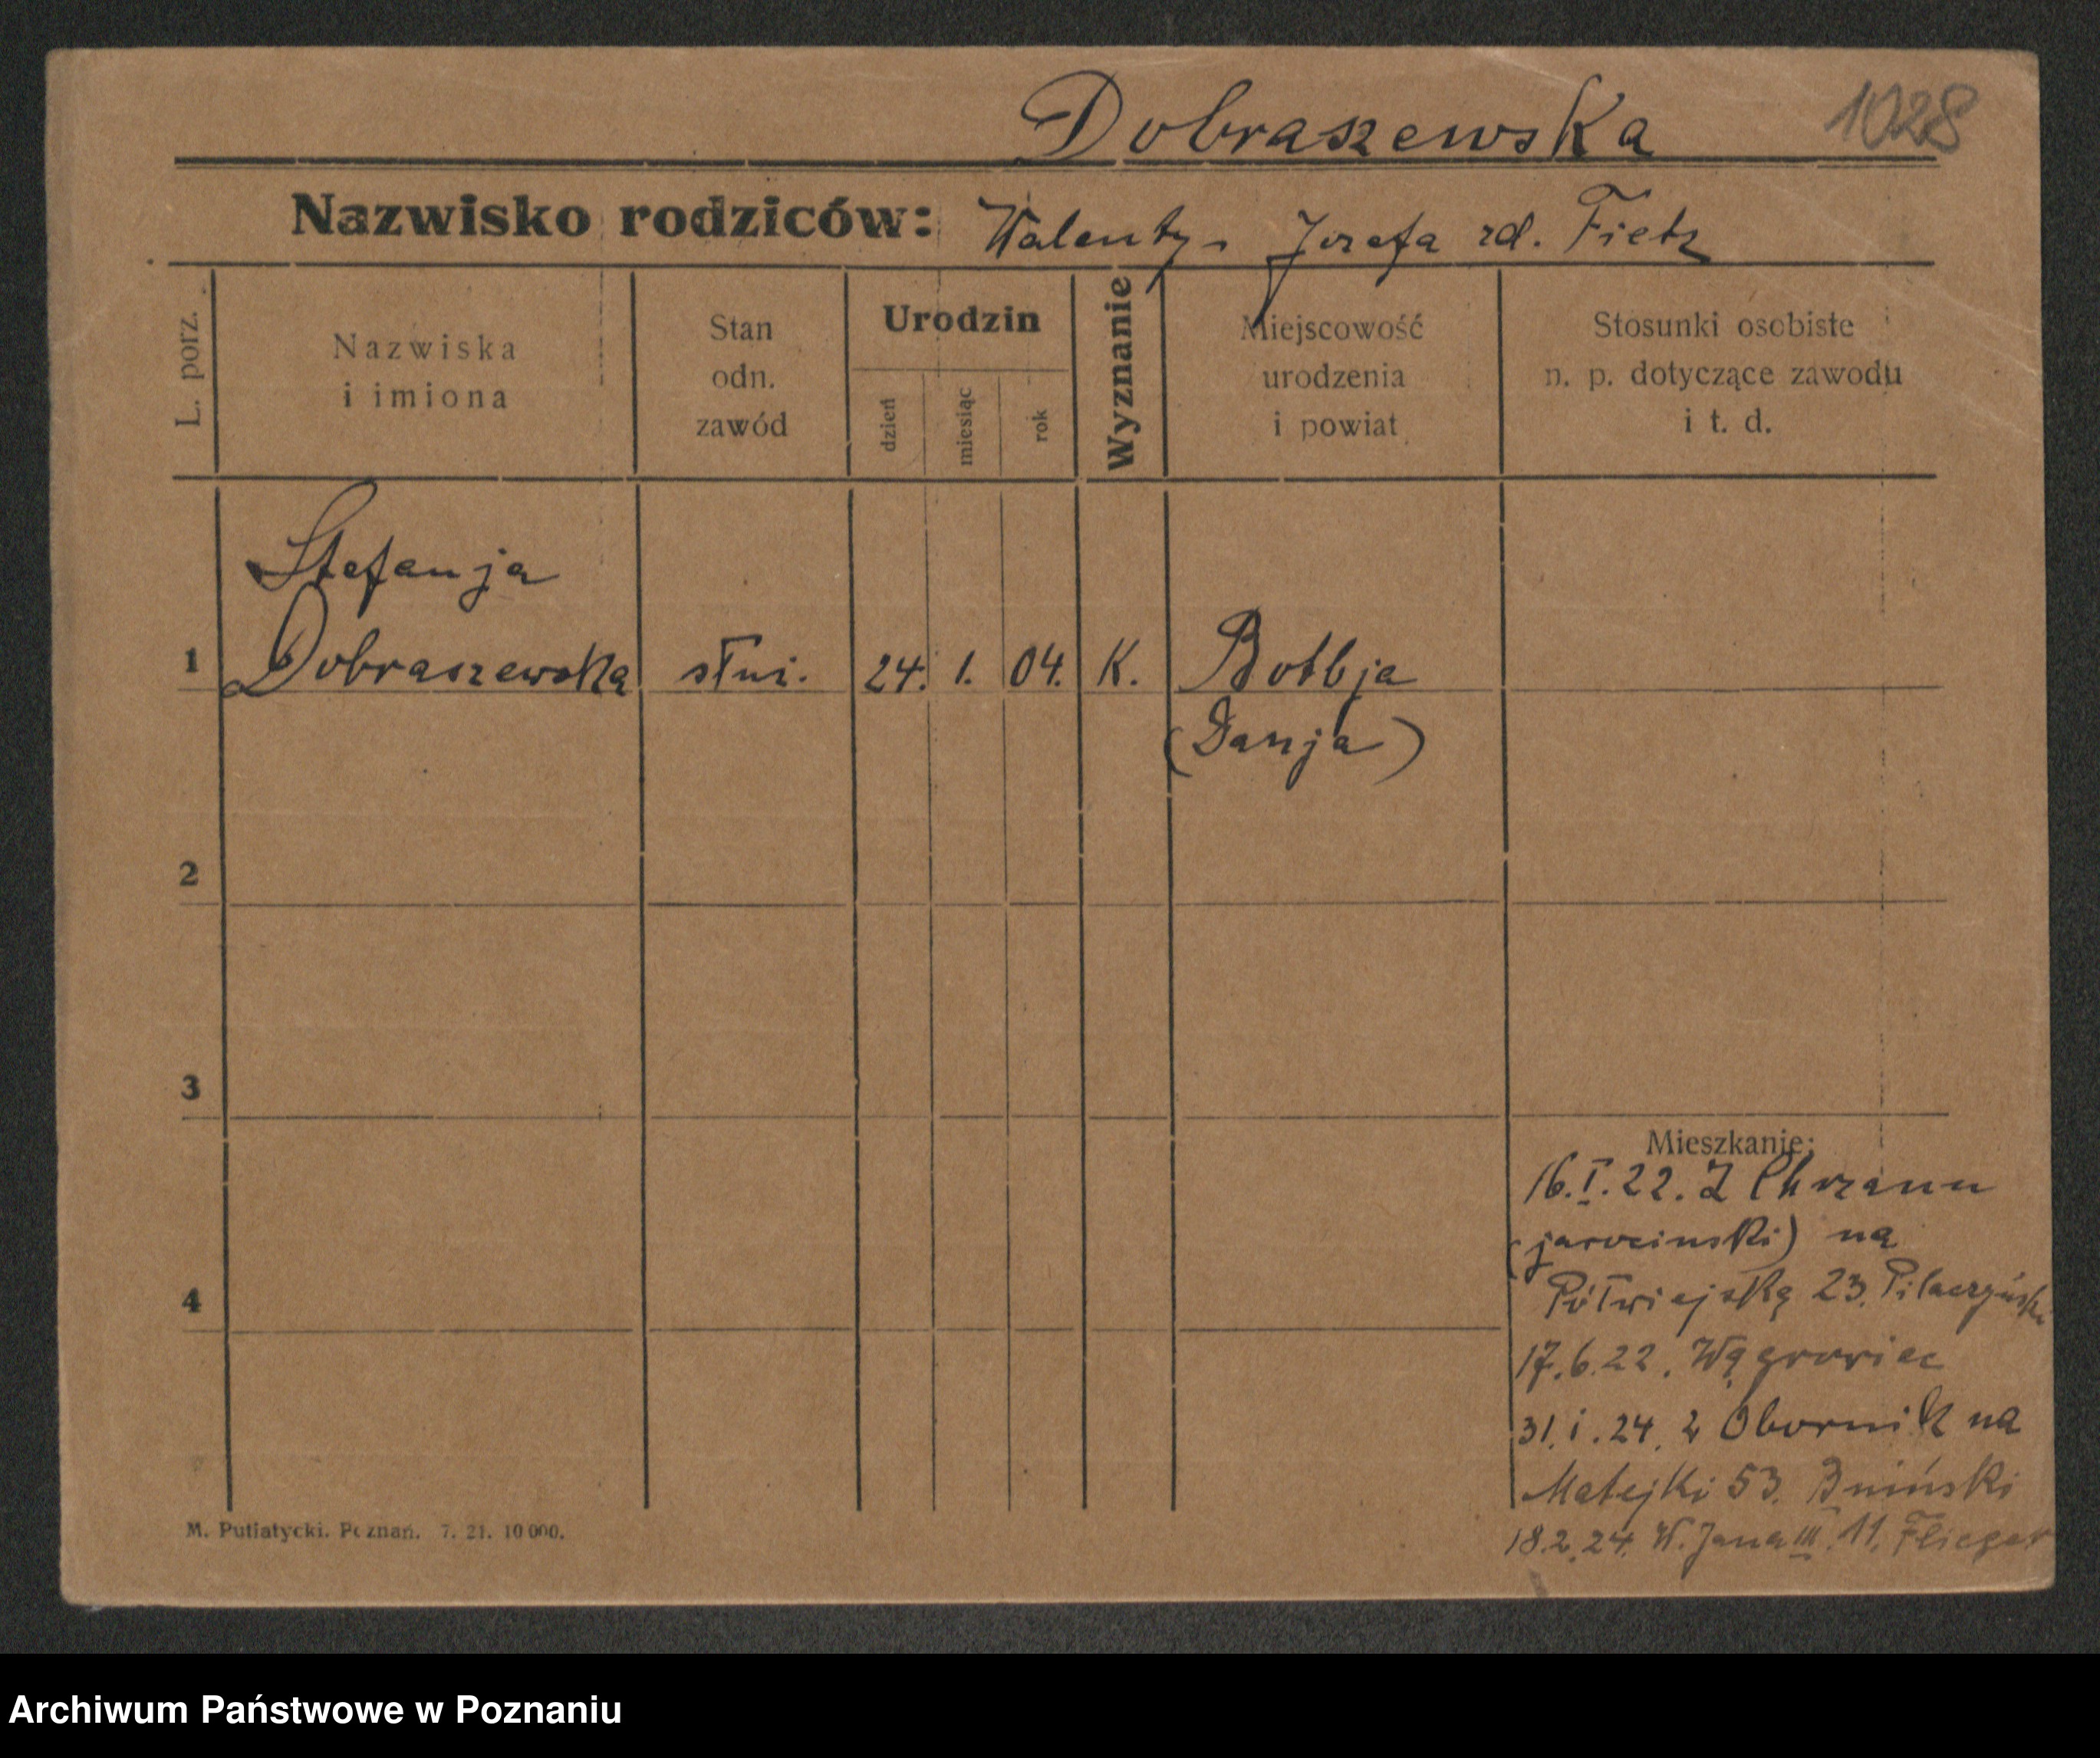 Dobraszewska 1028
Nazwisko rodziców: Walenty - Jozefa rd. Fietz
L. porz.
Nazwiska
i imiona
Stan
odn.
zawód
Urodzin
dzień
miesiąc
rok
Wyznanie
Miejscowość
urodzenia
i powiat
Stosunki osobiste
n. p. dotyczące zawodu
i t. d.
Stefanja
1 Dobraszewska służ. 24. 1. 04. K. Botbja
(Danja)
2
3
4
Mieszkanie:
16.I.22. Z Chrzanu
(jarocinski) na
Półwiejską 23. Pilaczyński
17.6.22. Wągrowiec
31.i.24. z Obornik na
Matejki 53. Bniński
18.2.24. W. Jana III. 11. Flieger
M. Putiatycki. Poznań. 7. 21. 10 000.
Archiwum Państwowe w Poznaniu